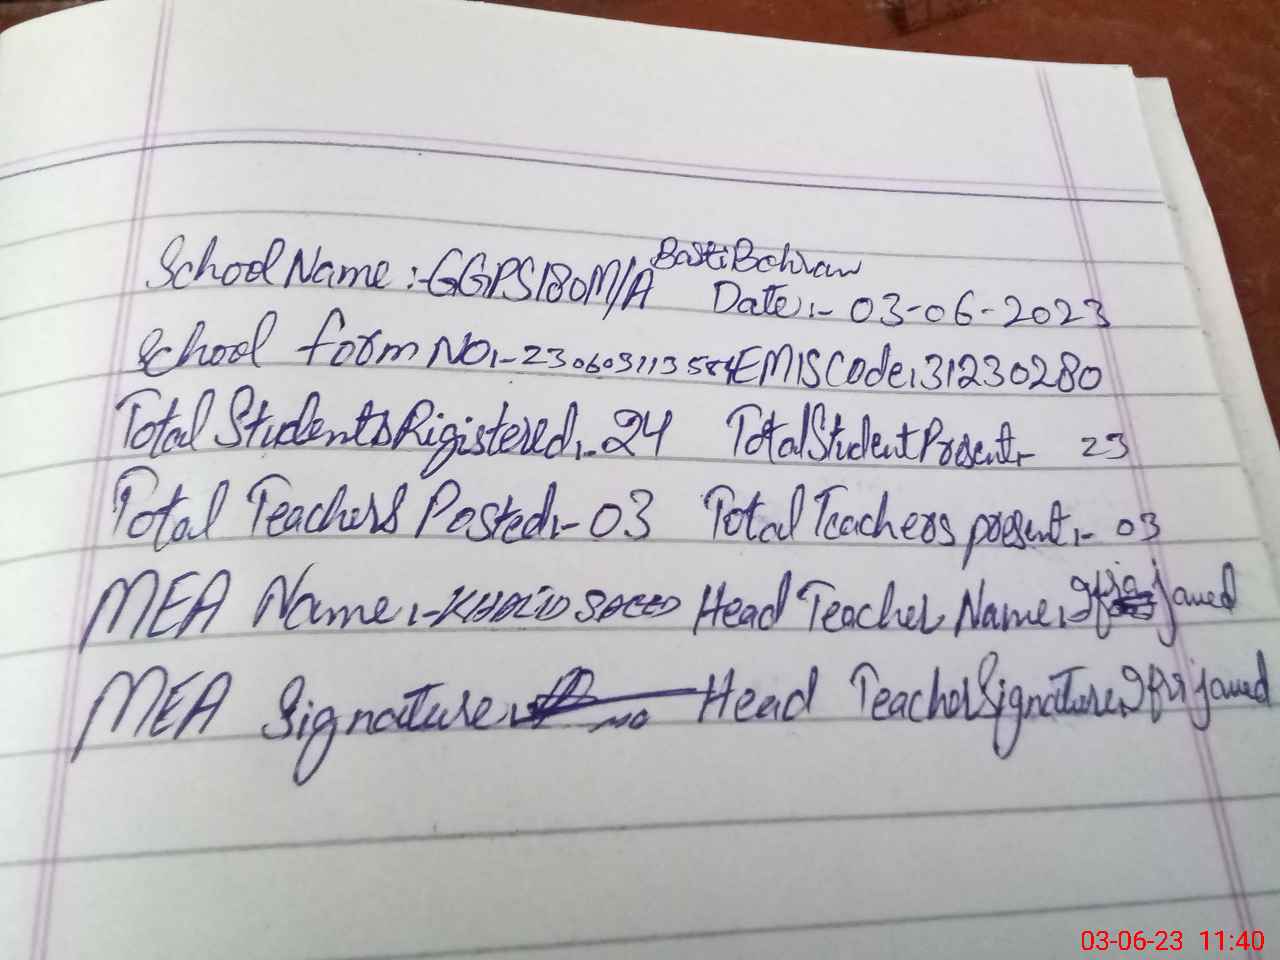 School Name :- GGPS 180M/A Basti Bohran Date :- 03-06-2023
School form NO :- 230603113584 EMIS Code : 31230280
Total Students Rigistered :- 24 Total Student Present :- 23
Total Teachers Posted :- 03 Total Teachers present :- 03
MEA Name :- KHALID SAEED Head Teacher Name : javed
MEA Signature : Head Teacher Signature : javed
03-06-23 11:40